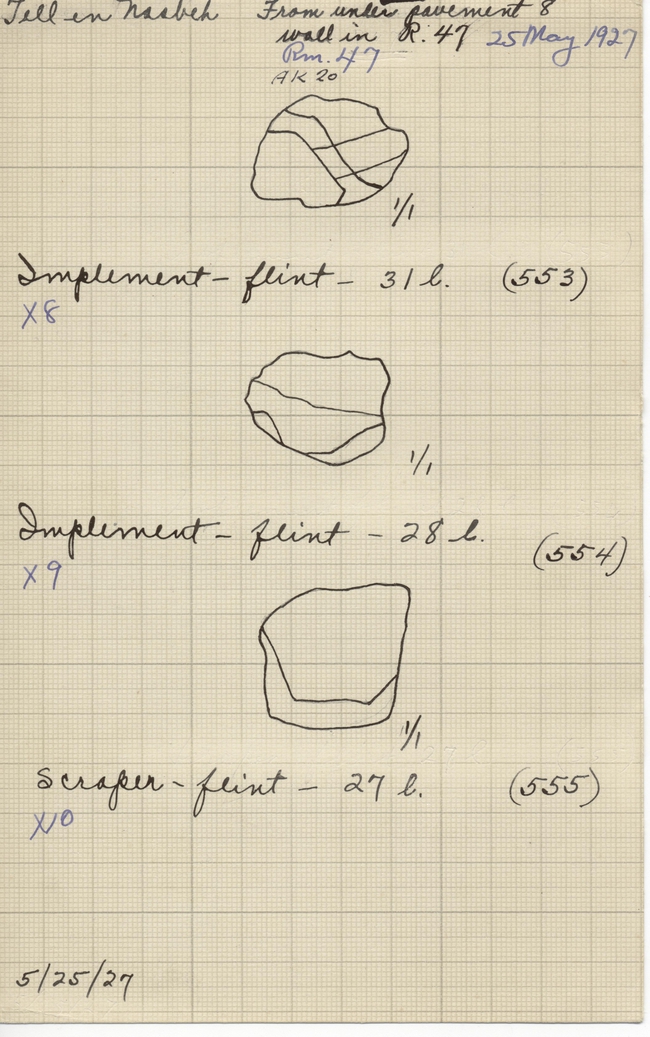 Tell en Nasbeh From under pavement &
wall in R. 47 25 May 1927
Rm. 47
AK 20
1/1
Implement - flint - 31 l. (553)
X8
1/1
Implement - flint - 28 l. (554)
X9
1/1
Scraper - flint - 27 l. (555)
X10
5/25/27